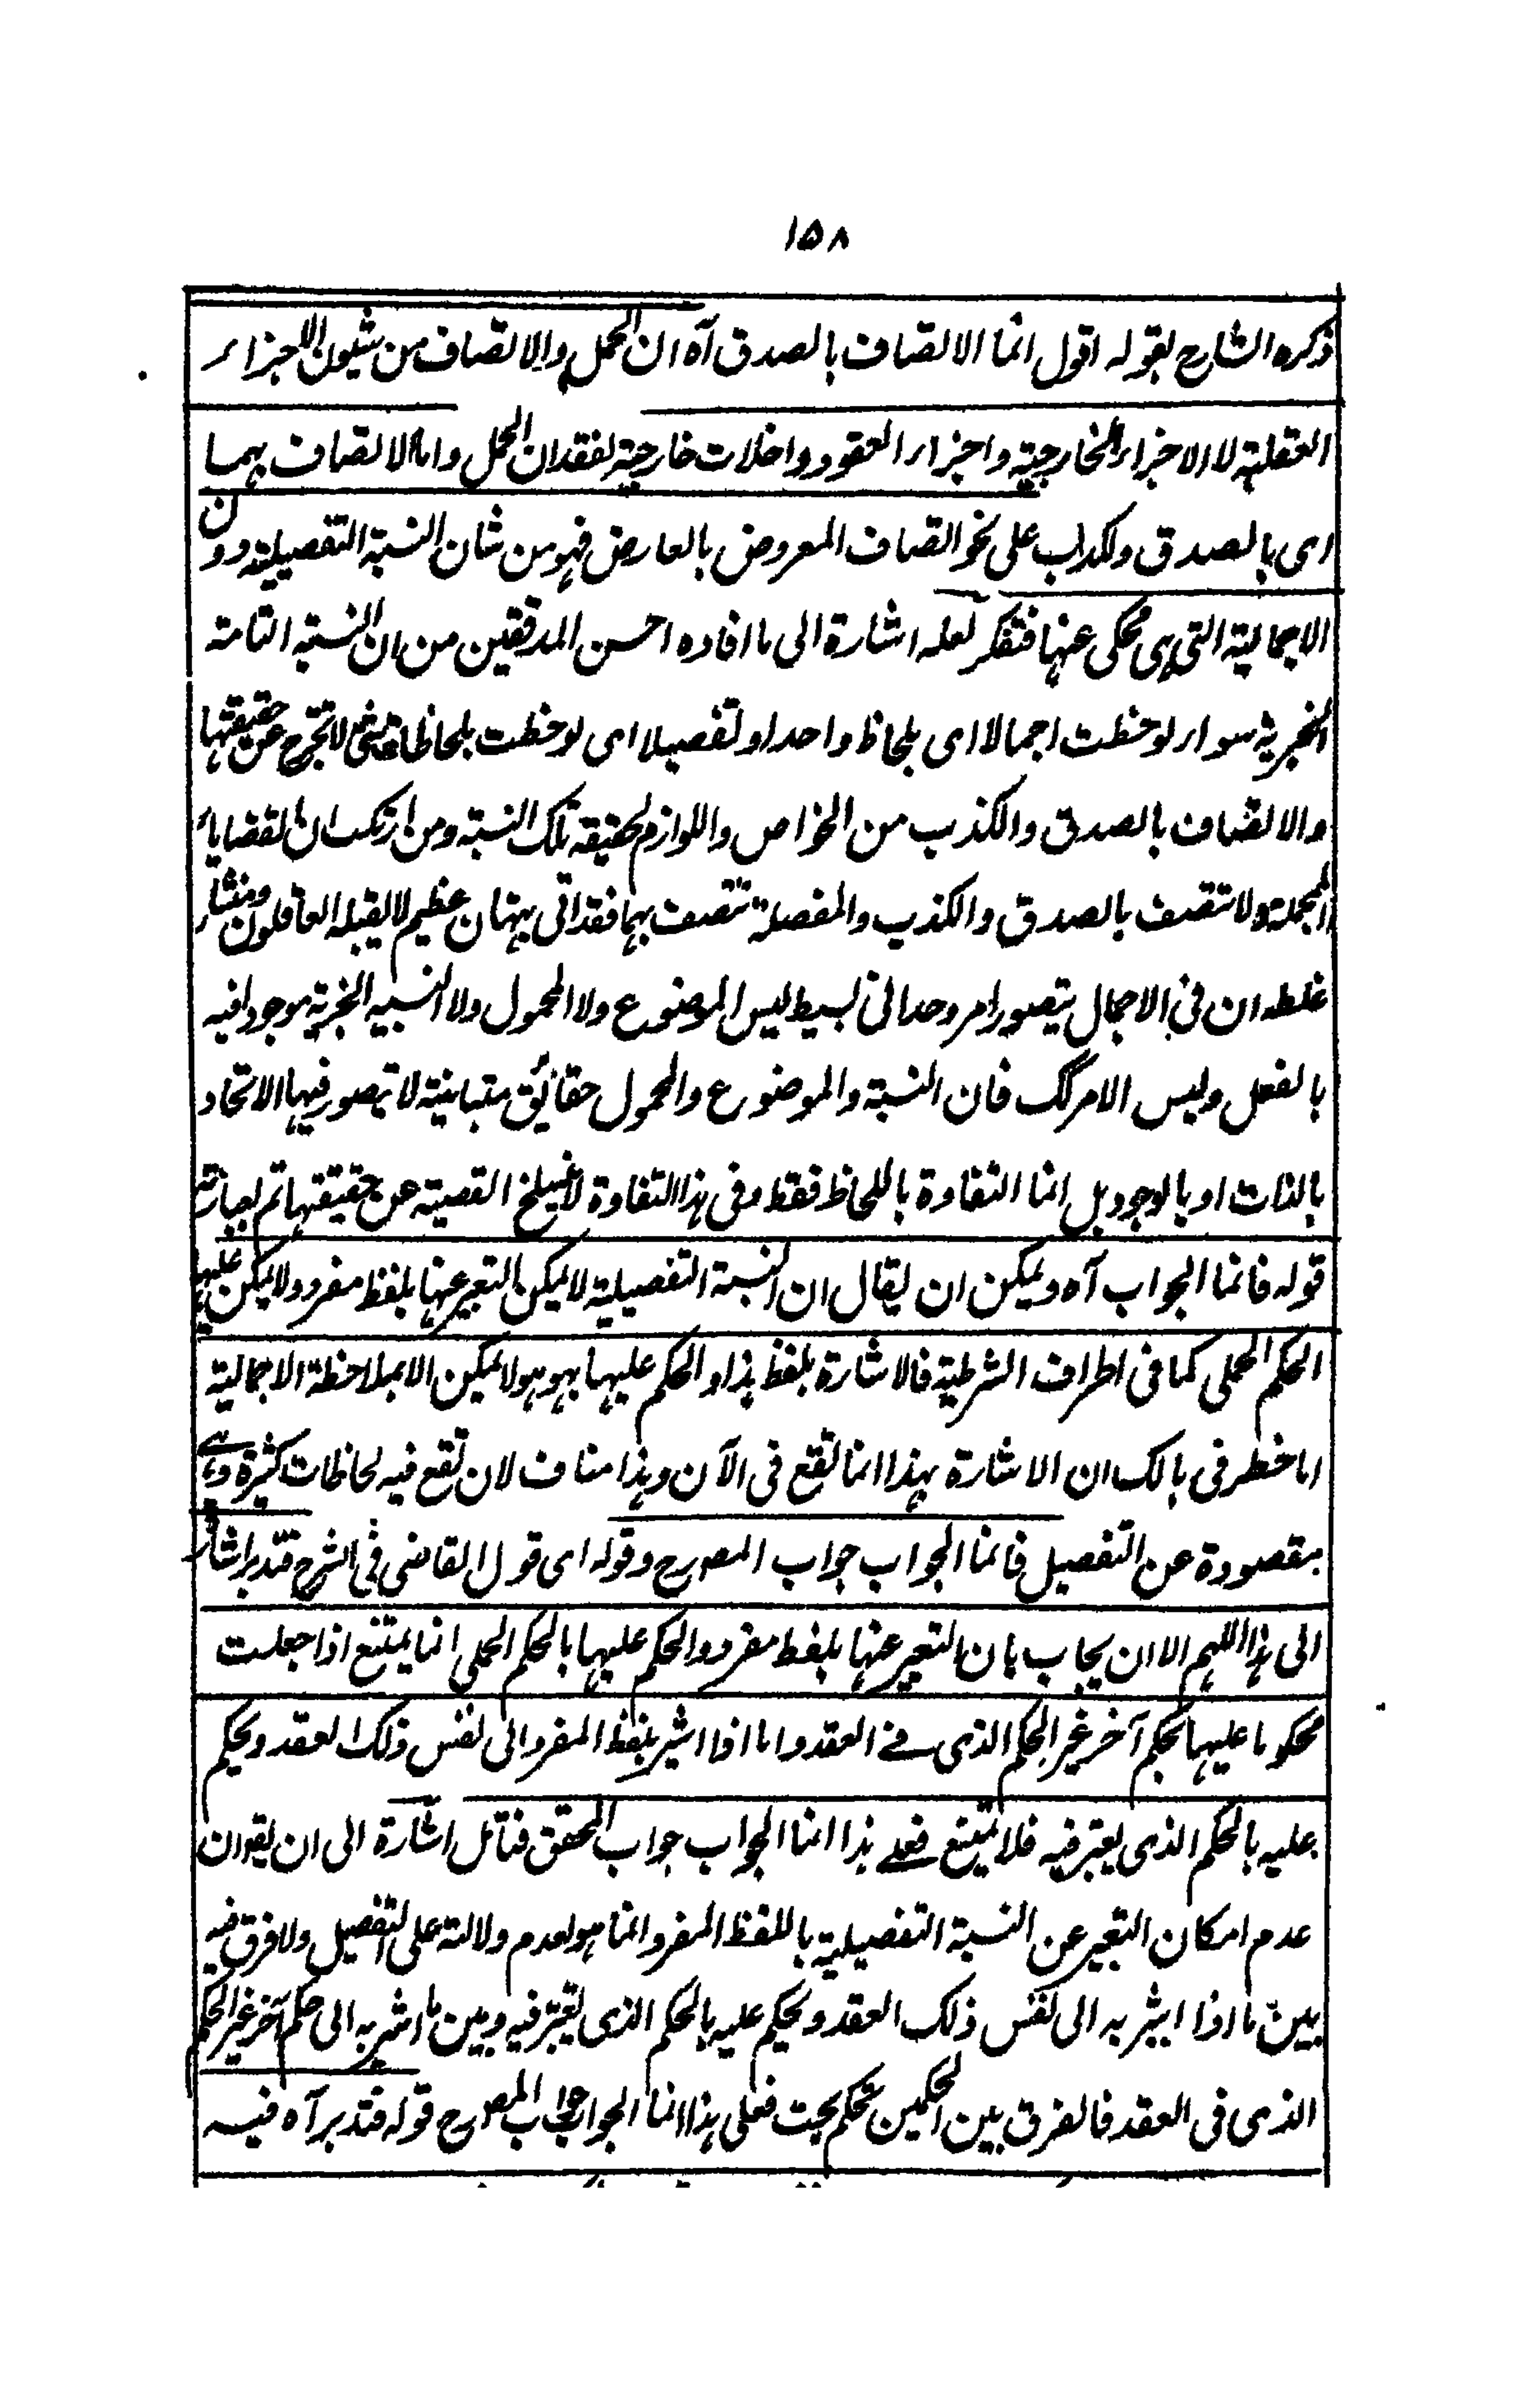 ١٥٨
ذكره الشارح بقوله اقول انما الاتصاف بالصدق آه ان الحمل والاتصاف من شيون الاجزاء
العقلية لا الاجزاء الخارجية واجزاء العقود داخلات خارجية لفقدان الحمل واما الاتصاف بهما
اى بالصدق والكذب على نحو اتصاف المعروض بالعارض فهو من شان النسبة التفصيلية دون
الاجمالية التى هى محكى عنها فتفكر لعله اشارة الى ما افاده احسن المدققين من ان النسبة التامة
الخبرية سواء لوحظت اجمالا اى بلحاظ واحد او تفصيلا اى لوحظت بلحاظات شتى لا تخرج عن حقيقتها
والاتصاف بالصدق والكذب من الخواص واللوازم لحقيقة تلك النسبة ومن ارتكب ان القضايا
المجملة ولا تتصف بالصدق والكذب والمفصلة تتصف بهما فقد اتى ببهتان عظيم لا يقبله العاقلون ومنشاء
غلطه ان فى الاجمال يتصور امر وحدانى بسيط ليس الموضوع ولا المحمول ولا النسبة الخبرية موجودا فيه
بالفعل وليس الامر كك فان النسبة والموضوع والمحمول حقائق متباينة لا يتصور فيها الاتحاد
بالذات او بالوجود بل انما التفاوة باللحاظ فقط وفى هذا التفاوة لا ينسلخ القضية عن حقيقتها تم بعبارته
قوله فانما الجواب آه ويمكن ان يقال ان النسبة التفصيلية لا يمكن التعبير عنها بلفظ مفرد ولا يمكن عليها
الحكم الحملى كما فى اطراف الشرطية فالاشارة بلفظ هذا والحكم عليها بهو هو لا يمكن الا بملاحظة الاجمالية
اما خطر فى بالك ان الاشارة بهذا انما تقع فى الآن وهذا مناف لان تقع فيه لحاظات كثيرة وهى
مقصودة عن التفصيل فانما الجواب جواب المصرح وقوله اى قول القاضى فى الشرح فتدبر اشارة
الى هذا اللهم الا ان يجاب بان التعبير عنها بلفظ مفرد والحكم عليها بالحكم الحملى انما يمتنع اذا جعلت
محكوما عليها بحكم آخر غير الحكم الذى فى العقد واما اذا اشير بلفظ المفرد الى نفس ذلك العقد ويحكم
عليه بالحكم الذى يعتبر فيه فلا يمتنع فعلى هذا انما الجواب جواب المحقق فتامل اشارة الى ان يقول ان
عدم امكان التعبير عن النسبة التفصيلية باللفظ المفرد انما هو لعدم دلالته على التفصيل ولا فرق فيه
بين ما اذا اشير به الى نفس ذلك العقد ويحكم عليه بالحكم الذى يعتبر فيه وبين ما اشير به الى حكم آخر غير الحكم
الذى فى العقد فالفرق بين الحكمين تحكم بحت فعلى هذا انما الجواب جواب المصرح قوله فتدبر آه فيه